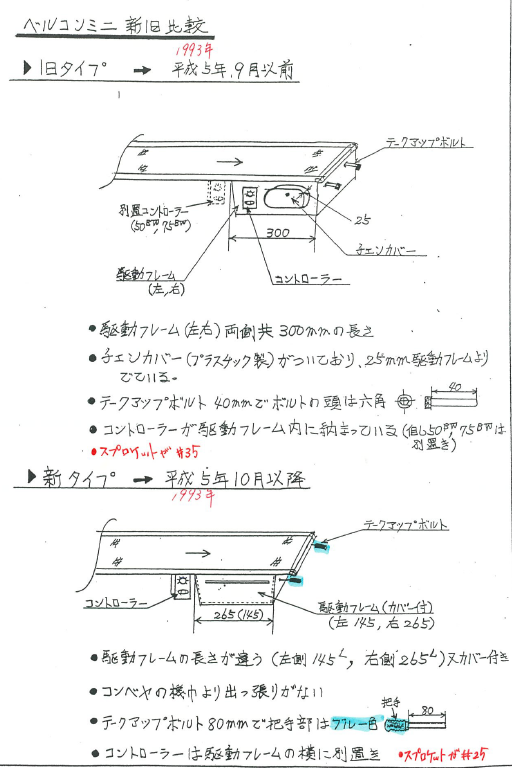 ベルコンミニ 新旧比較
1993年
▶旧タイプ → 平成5年.9月以前
テークアップボルト
別置コントローラー
(50BW, 75BW)
25
300
チェンカバー
駆動フレーム
(左,右)
コントローラー
●駆動フレーム(左,右) 両側共 300mmの長さ
●チェンカバー(プラスチック製)がついており、25mm駆動フレームより
でている。
●テークアップボルト 40mmでボルトの頭は六角
40
●コントローラーが駆動フレーム内に納まっている(但し50BW, 75BWは
別置き)
●スプロケットが#35
▶新タイプ → 平成5年10月以降
1993年
テークアップボルト
コントローラー
265(145)
駆動フレーム(カバー付)
(左145, 右265)
●駆動フレームの長さが違う (左側145L, 右側265L)又カバー付き
●コンベヤの機巾より出っ張りがない
把手
●テークアップボルト80mmで把手部はブルー色
80
●コントローラーは駆動フレームの横に別置き
●スプロケットが#25